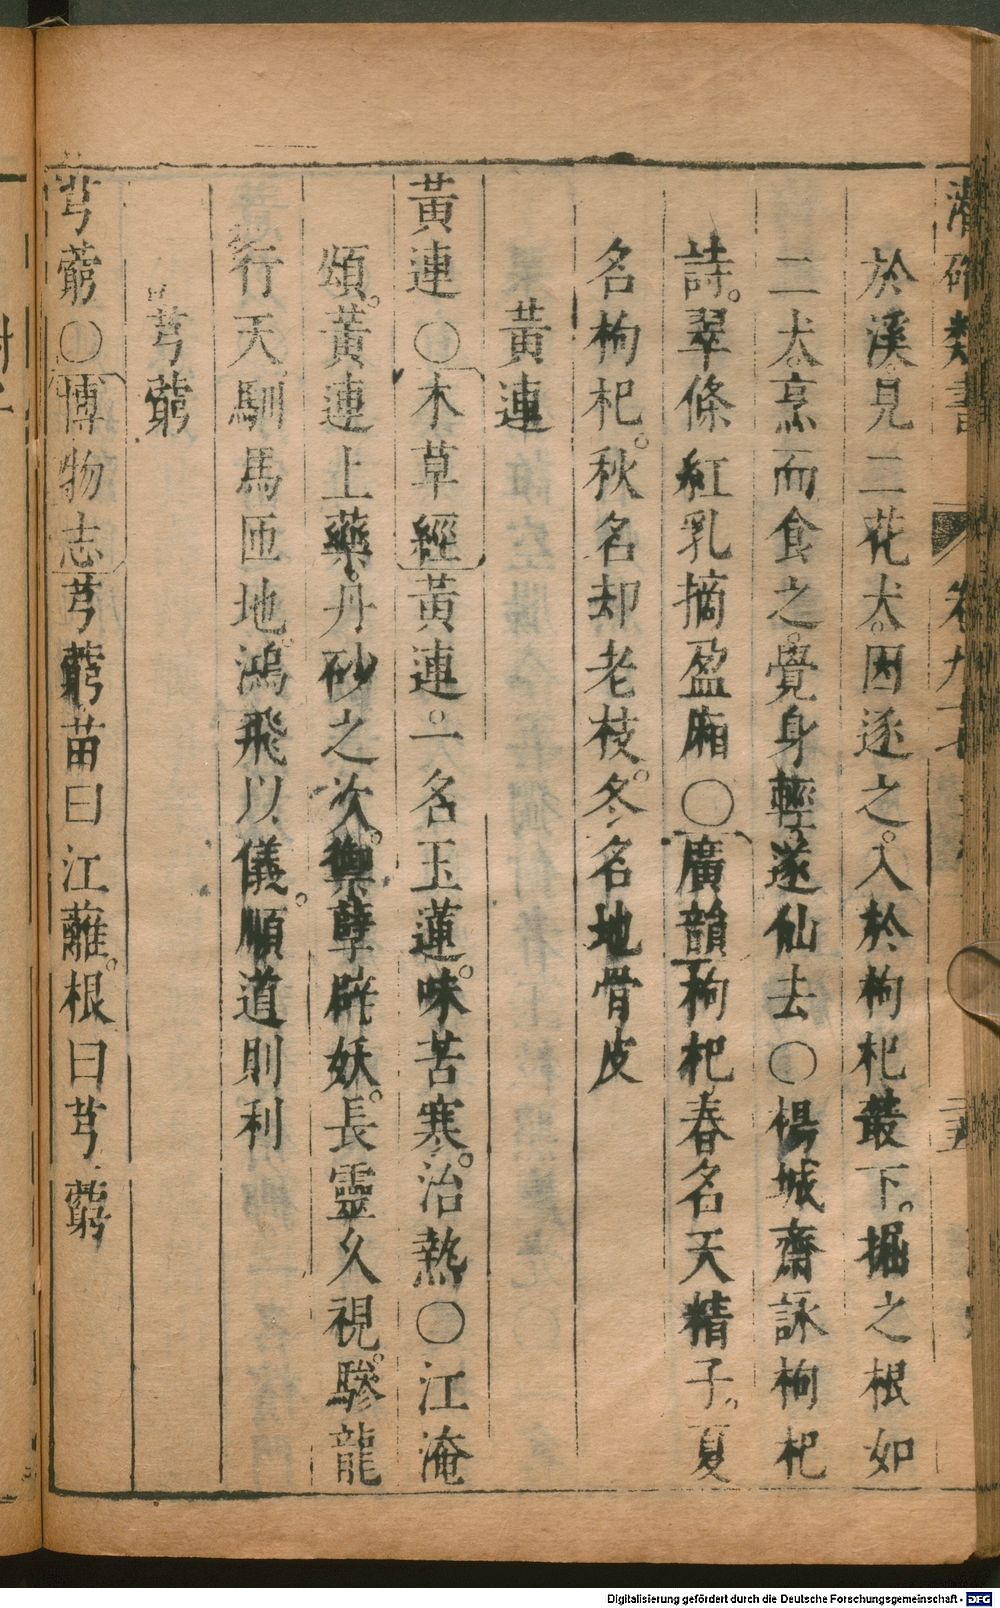 潛確類書 卷九十
於溪見二花犬。因逐之。入於枸杞叢下。掘之根如
二犬。烹而食之。覺身輕。遂仙去〇楊城齋詠枸杞
詩。翠條紅乳摘盈廂〇廣韻枸杞春名天精子。夏
名枸杞。秋名却老枝。冬名地骨皮
黃連
黃連〇本草經黃連。一名玉蓮。味苦寒。治熱〇江淹
頌。黃連上藥。丹砂之次。禦孽辟妖。長靈久視。驂龍
行天。馴馬匝地。鴻飛以儀。順道則利
芎藭
芎藭〇博物志芎藭苗曰江蘺。根曰芎藭
Digitalisierung gefördert durch die Deutsche Forschungsgemeinschaft - DFG